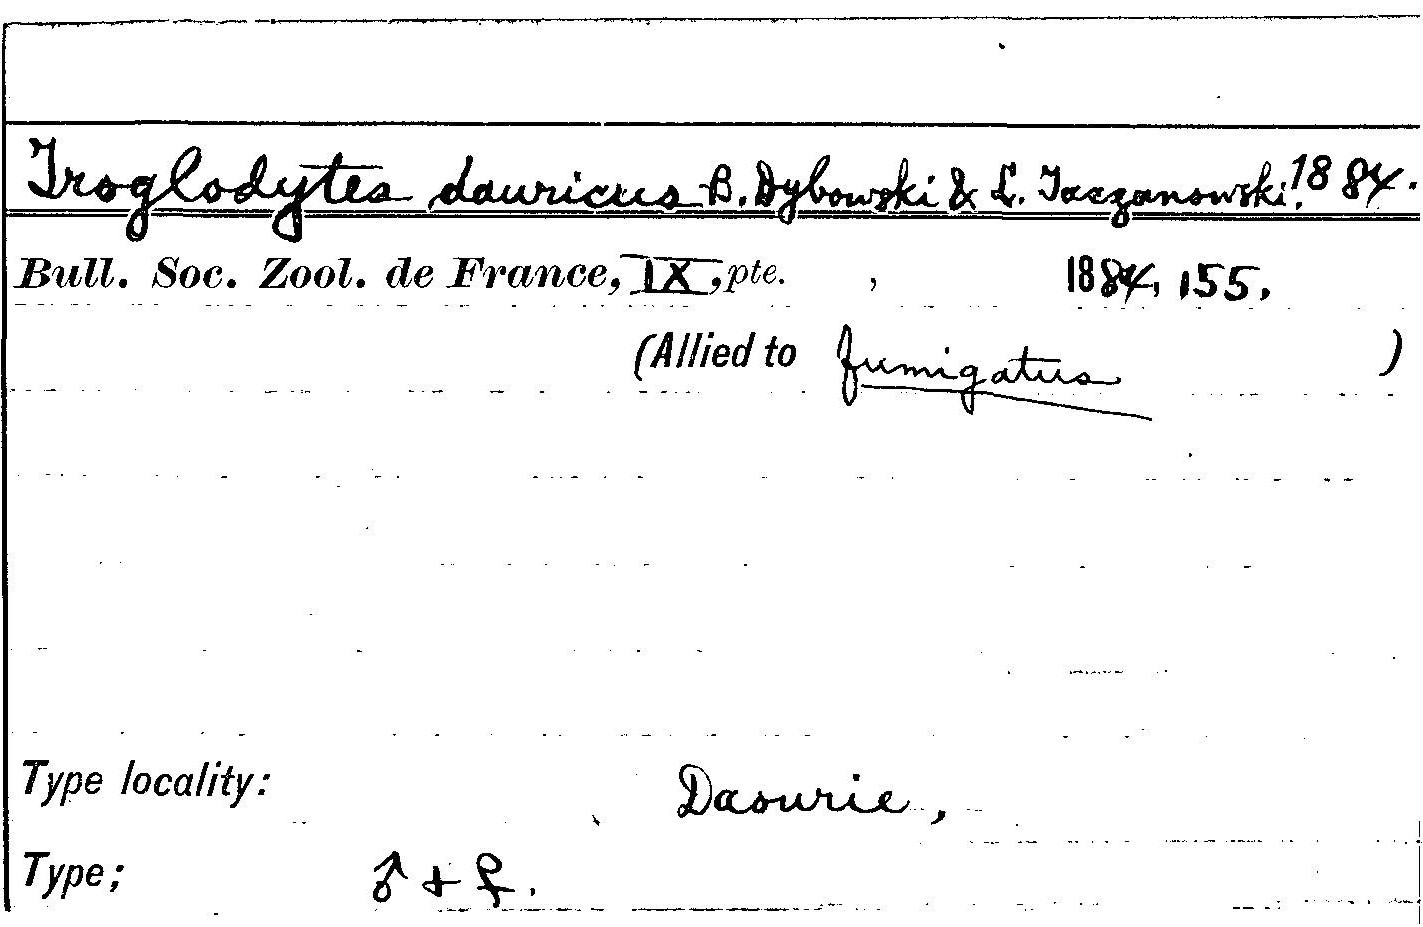 Troglodytes dauricus B. Dybowski & L. Taczanowski. 1884.
Bull. Soc. Zool. de France, IX, pte. , 1884, 155.
(Allied to fumigatus )
Type locality: Daourie,
Type; ♂ + ♀.